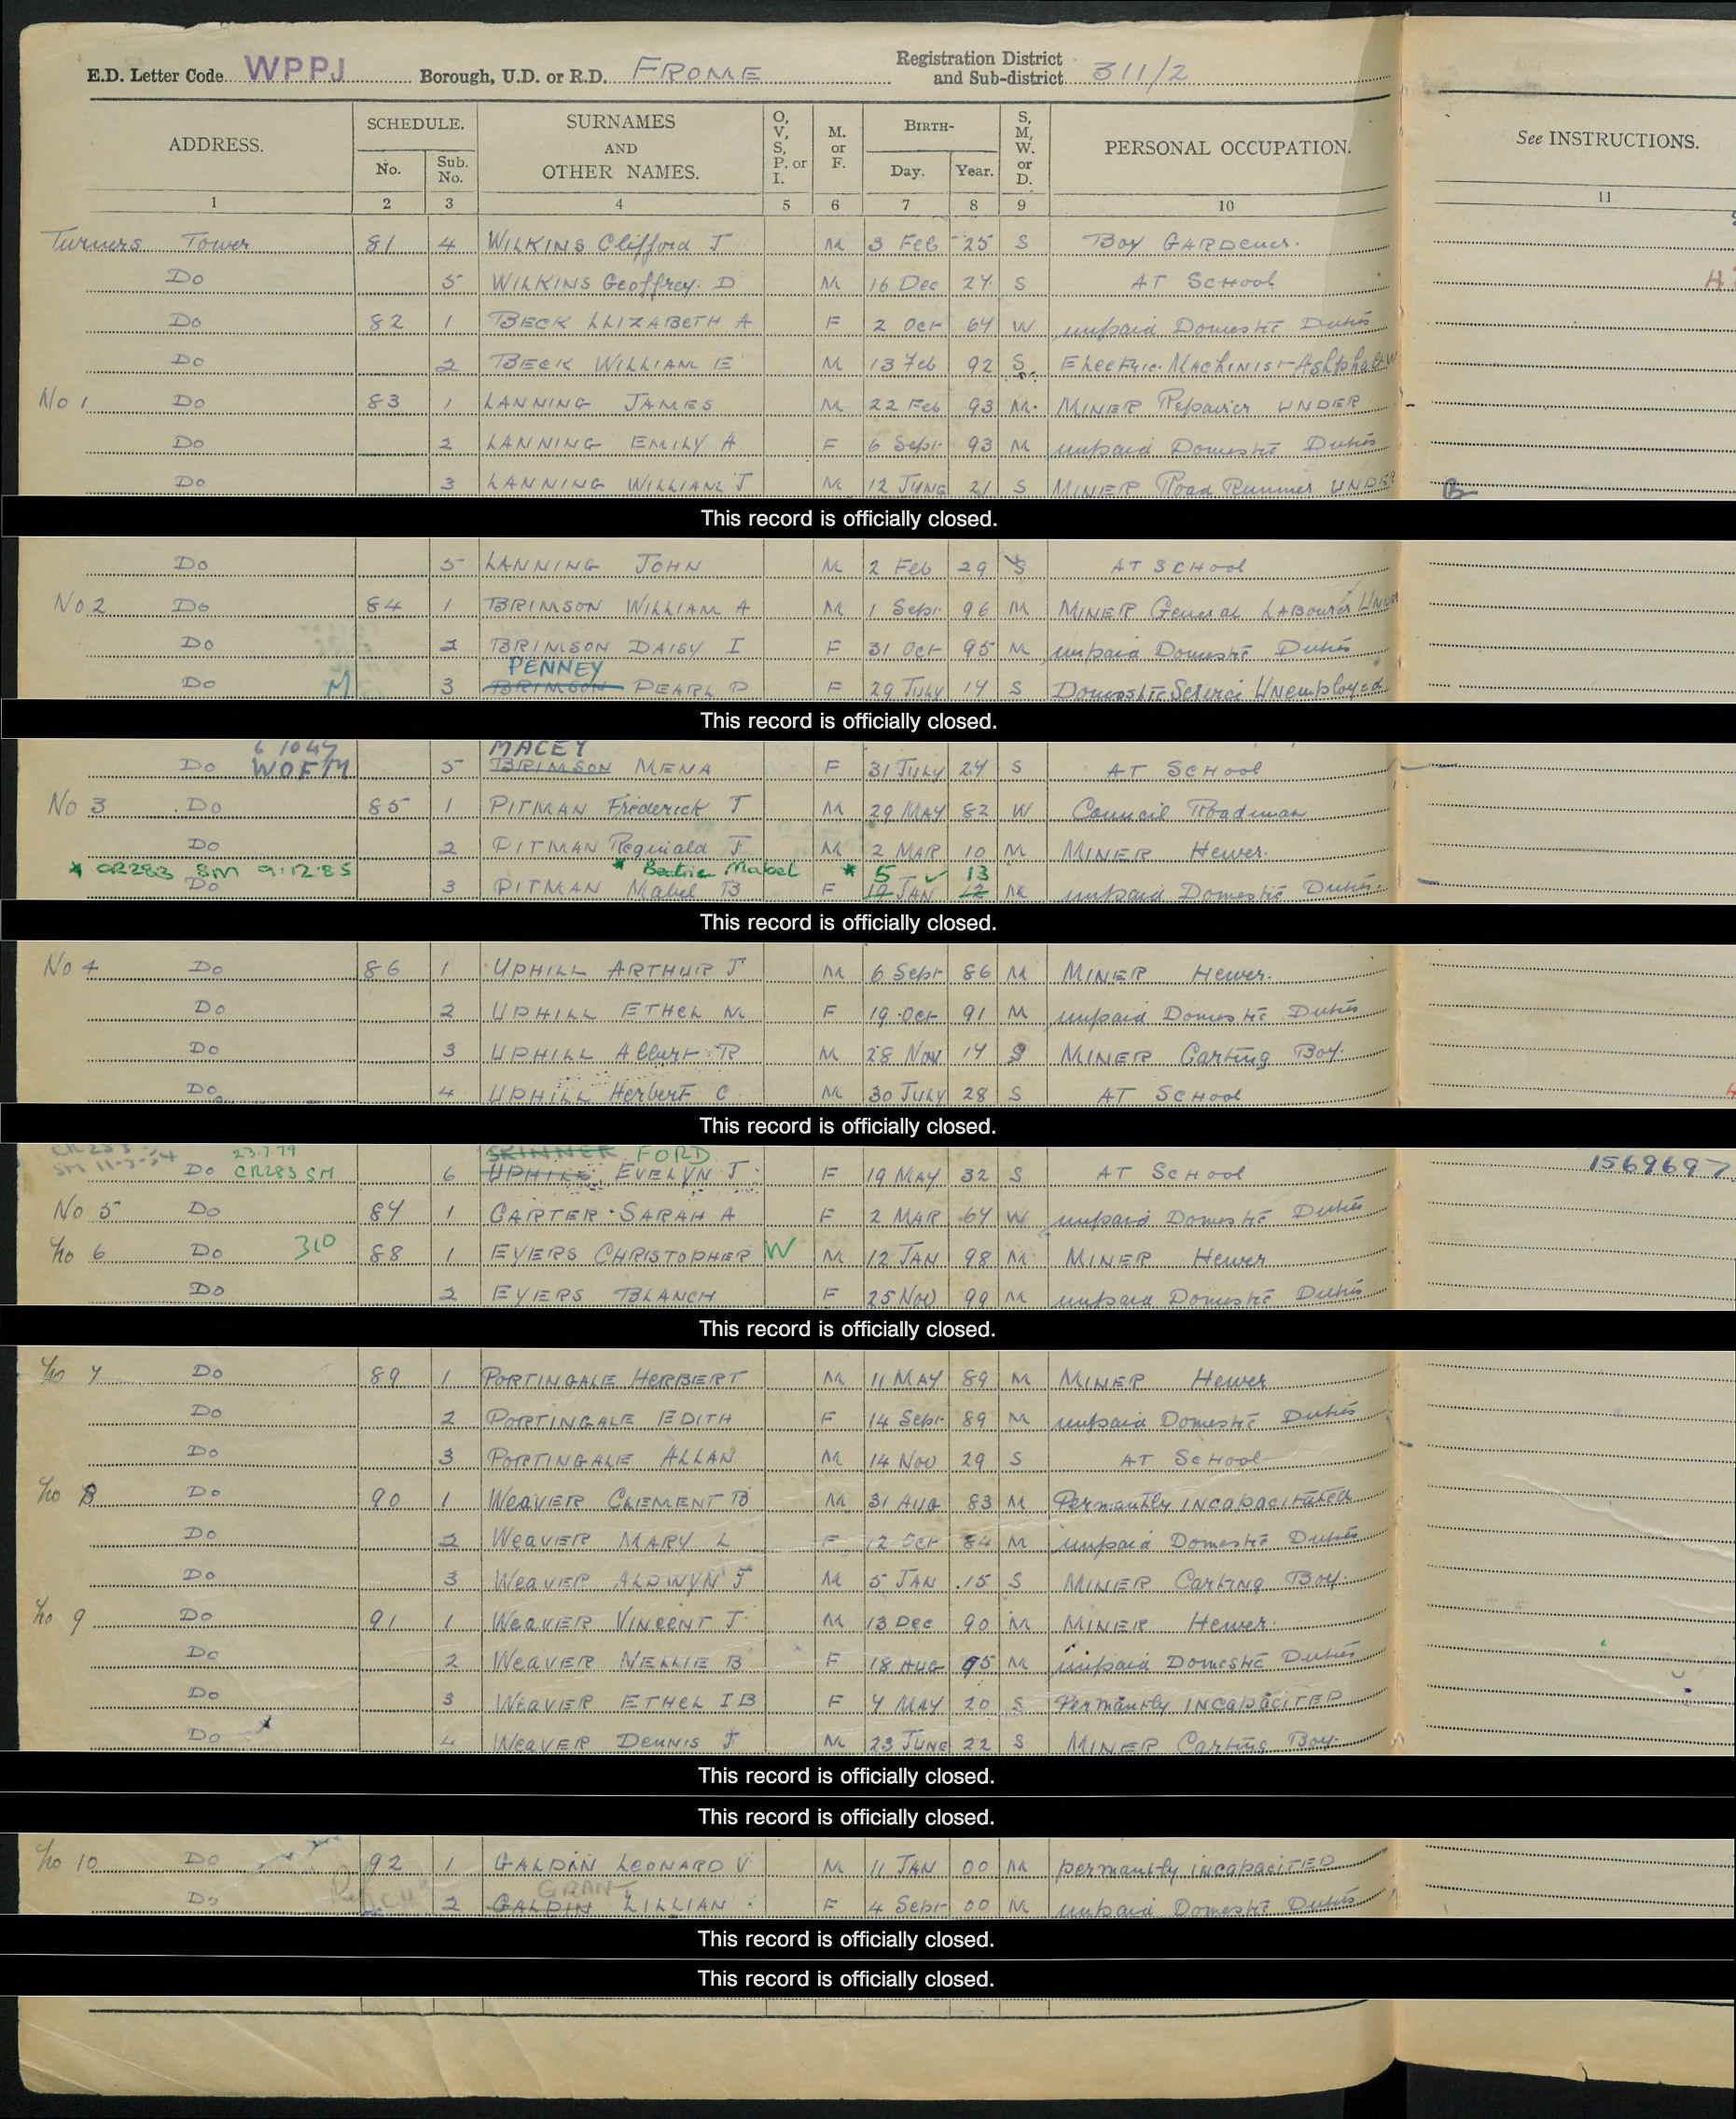 E.D. Letter Code WPPJ Borough, U.D. or R.D. FROME Registration District and Sub-district 311/2
ADDRESS. SCHEDULE. No. Sub. No. SURNAMES AND OTHER NAMES. O, V, S, P. or I. M. or F. BIRTH- Day. Year. S, M, W. or D. PERSONAL OCCUPATION. See INSTRUCTIONS.
1 2 3 4 5 6 7 8 9 10 11
Turners Tower 81 4 WILKINS Clifford J M 3 Feb 25 S Boy GARDener.
Do 5 WILKINS Geoffrey D M 16 Dec 27 S AT School
Do 82 1 BECK LLIZABETH A F 2 Oct 64 W unpaid Domestic Duties
Do 2 BECK WILLIAM E M 13 Feb 92 S Electric Machinist Ashphalt W
No 1 Do 83 1 LANNING JAMES M 22 Feb 93 M MINER Repairer UNDER
Do 2 LANNING EMILY A F 6 Sept 93 M unpaid Domestic Duties
Do 3 LANNING WILLIAM J M 12 JUNE 21 S MINER Road Runner UNDER
This record is officially closed.
Do 5 LANNING JOHN M 2 Feb 29 S AT SCHool
No 2 Do 84 1 BRIMSON WILLIAM A M 1 Sept 96 M MINER General LABourer
Do 2 BRIMSON DAISY I F 31 Oct 95 M unpaid Domestic Duties
PENNEY
Do M 3 BRIMSON PEARL D F 29 July 17 S Domestic Service Unemployed
This record is officially closed.
MACEY
Do WOFM 5 BRIMSON MENA F 31 July 24 S AT School
No 3 Do 85 1 PITMAN Frederick J M 29 MAY 82 W Council Roadman
Do 2 PITMAN Reginald J M 2 MAR 10 M MINER Hewer.
* CR283 SM 9.12.85 * Beatrice Mabel * 5 ✓ 13
Do 3 PITMAN Mabel B F JAN 12 M unpaid Domestic Duties.
This record is officially closed.
No 4 Do 86 1 UPHILL ARTHUR J M 6 Sept 86 M MINER Hewer.
Do 2 UPHILL ETHEL M F 19 Oct 91 M unpaid Domestic Duties
Do 3 UPHILL Albert R M 28 Nov 17 S MINER Carting Boy.
Do 4 UPHILL Herbert C M 30 July 28 S AT School
This record is officially closed.
23.7.79 SKINNER FORD
Do CR283 SM 6 UPHILL EVELYN J F 19 MAY 32 S AT School 1569697
No 5 Do 87 1 CARTER SARAH A F 2 MAR 67 W unpaid Domestic Duties
No 6 Do 310 88 1 EYERS CHRISTOPHER W M 12 JAN 98 M MINER Hewer
Do 2 EYERS BLANCH F 25 Nov 99 M unpaid Domestic Duties
This record is officially closed.
No 7 Do 89 1 PORTINGALE HERBERT M 11 MAY 89 M MINER Hewer
Do 2 PORTINGALE EDITH F 14 Sept 89 M unpaid Domestic Duties
Do 3 PORTINGALE ALLAN M 14 Nov 29 S AT School
No 8 Do 90 1 WeAVER CLEMENT B M 31 AUG 83 M Permantly INCapacitated
Do 2 WeAVER MARY L F 12 Oct 84 M unpaid Domestic Duties
Do 3 WeAVER ALDWYN J M 5 JAN 15 S MINER Carting Boy.
No 9 Do 91 1 WeAVER VINCENT J M 13 Dec 90 M MINER Hewer.
Do 2 WeAVER NELLIE B F 18 AUG 95 M unpaid Domestic Duties
Do 3 WeAVER ETHEL I B F 7 MAY 20 S Permantly INCapacITED
Do 4 WeAVER Dennis J M 23 JUNE 22 S MINER Carting Boy.
This record is officially closed.
This record is officially closed.
No 10 Do 92 1 GALPIN LeONARD V M 11 JAN 00 M permantly incapacITED
GRAN
Do 2 GALPIN LILLIAN F 4 Sept 00 M unpaid Domestic Duties
This record is officially closed.
This record is officially closed.